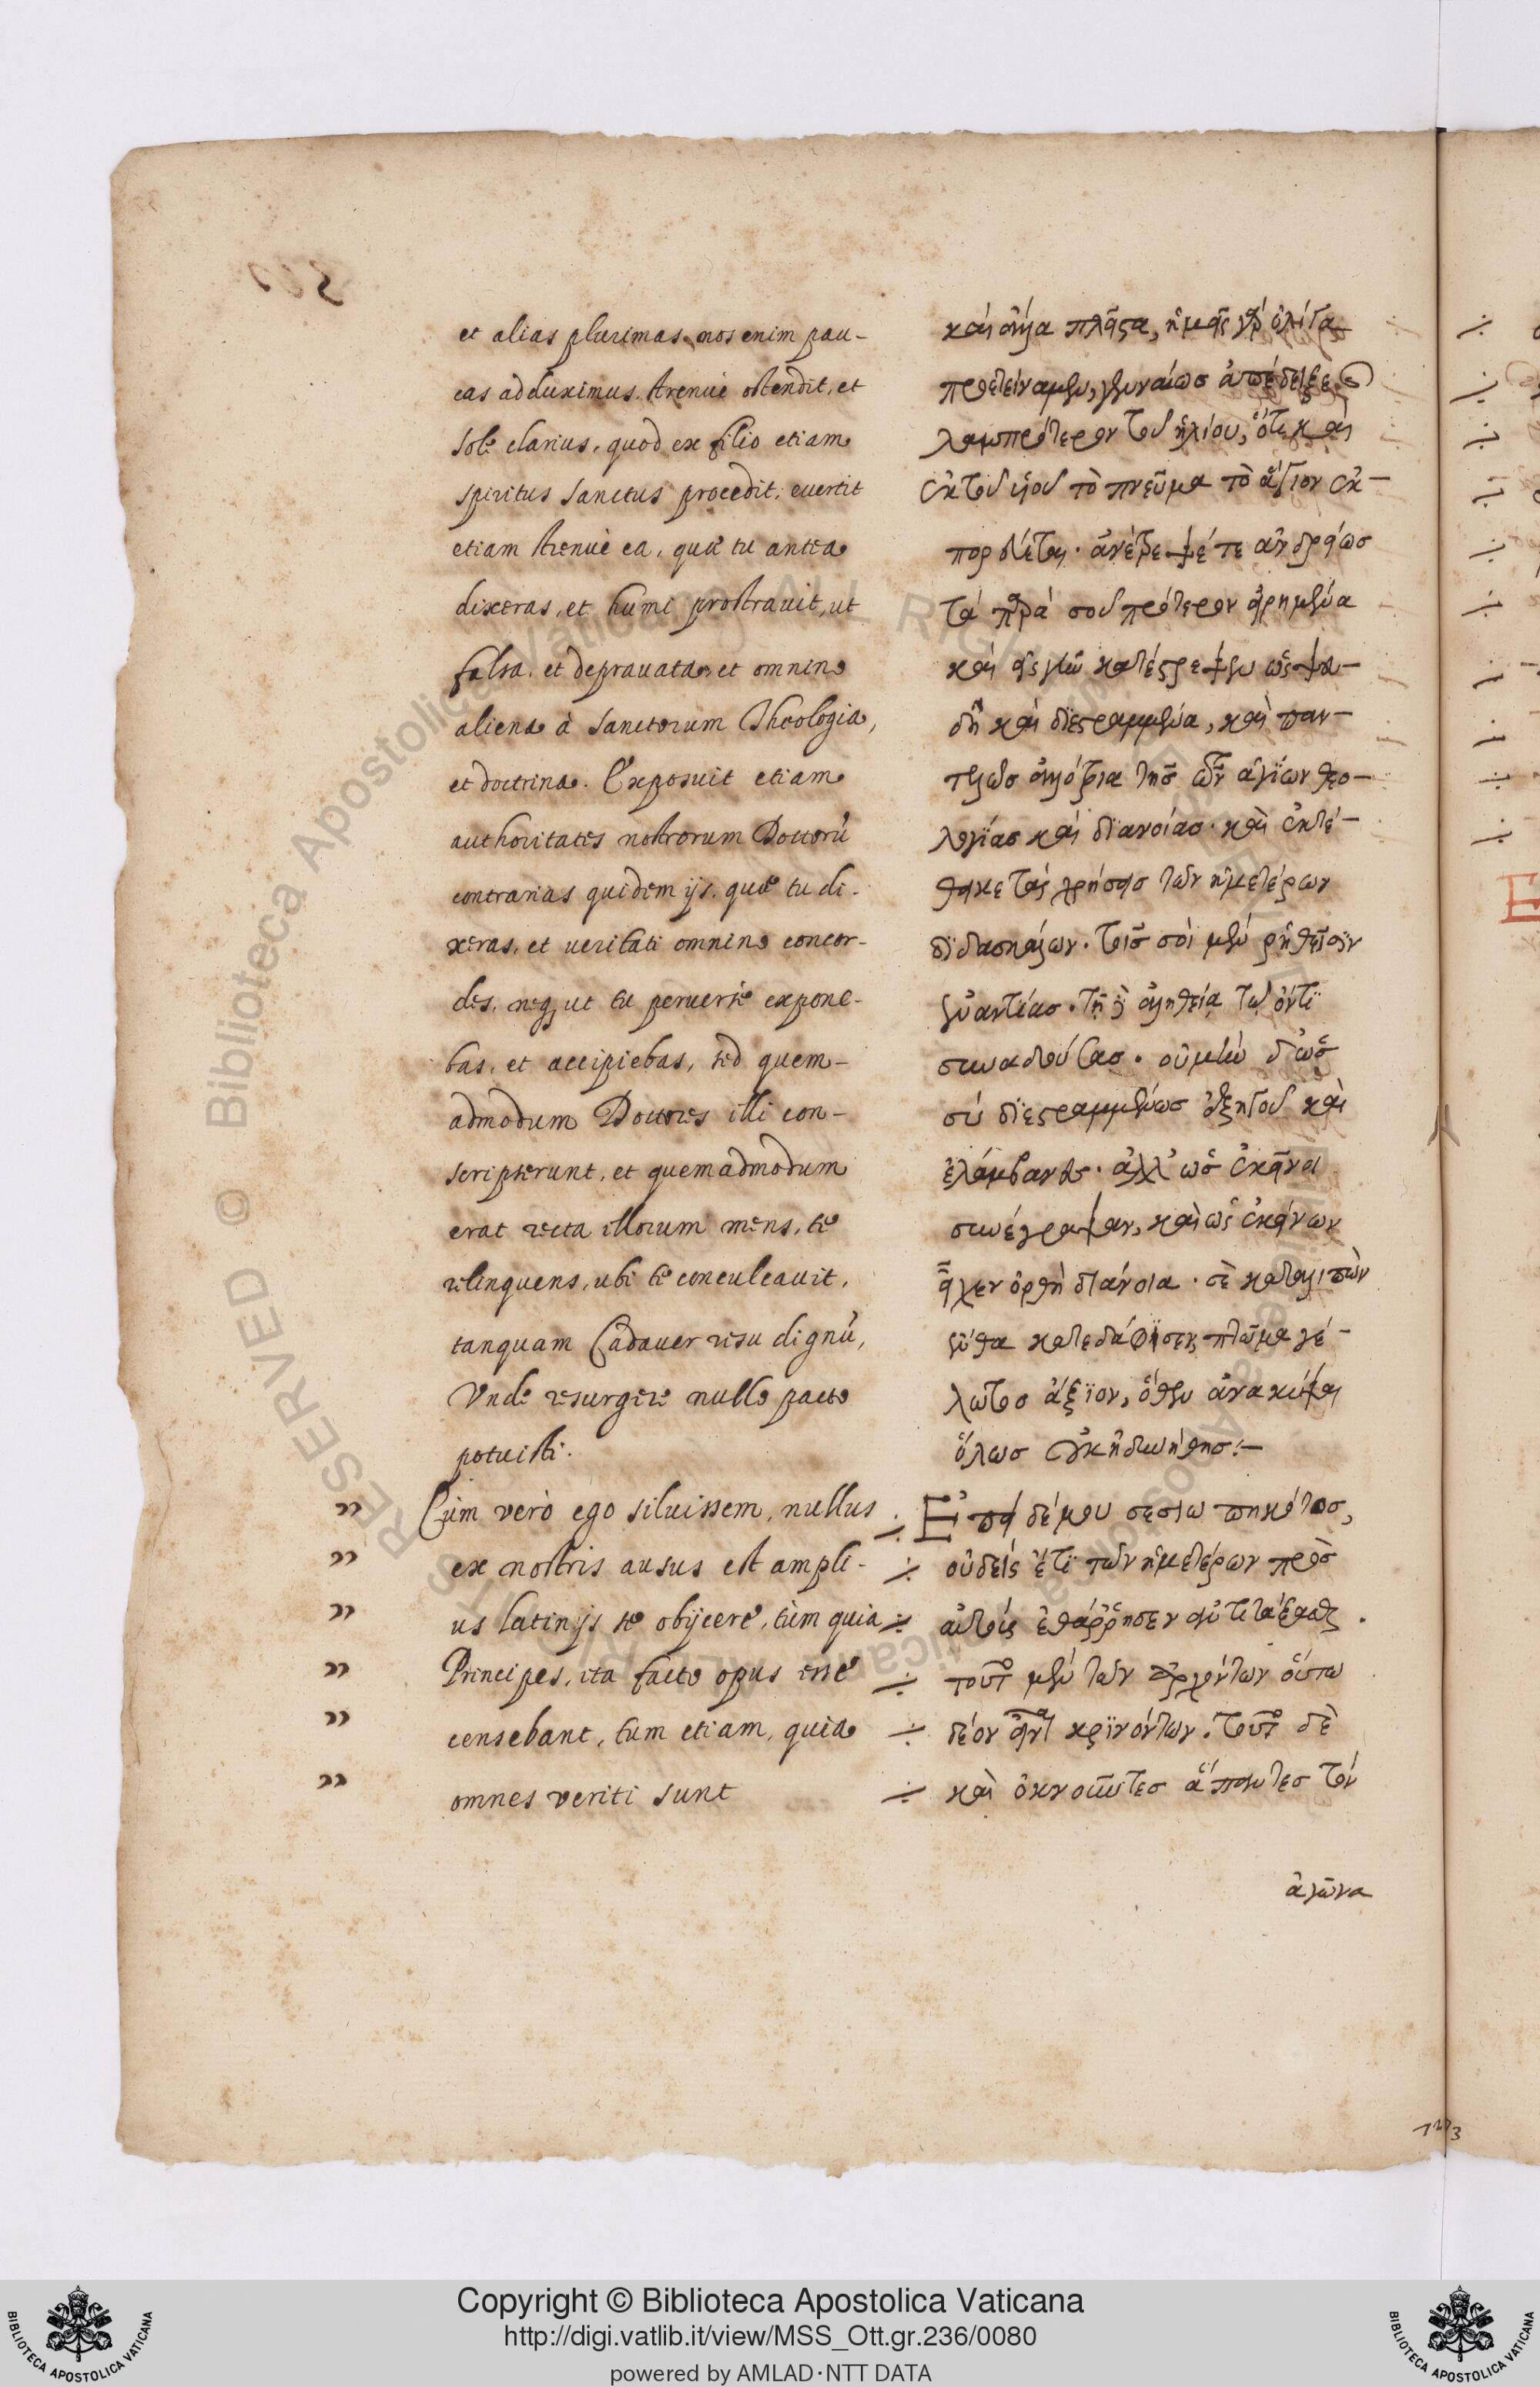 et alias plurimas, nos enim pau-
cas adduximus. strenuè ostendit, et
sole clarius, quod ex filio etiam
spiritus sanctus procedit, euertit
etiam strenuè ea, quæ tu antea
dixeras, et humi prostrauit, ut
falsa, et deprauata, et omnino
aliena à sanctorum Theologia,
et doctrina. Exposuit etiam
authoritates nostrorum Doctorũ
contrarias quidem ijs, quæ tu di-
xeras, et ueritati omnino concor-
des, neq; ut tu peruersè expone-
bas, et accipiebas, sed quem-
admodum Doctores illi con-
scripserunt, et quemadmodum
erat recta illorum mens, te
relinquens, ubi te conculcauit,
tanquam Cadauer risu dignũ,
Vnde resurgere nullo pacto
potuisti.
Cùm verò ego siluissem, nullus
ex nostris ausus est ampli-
us latinis se obijcere, tùm quia
Principes, ita facto opus esse
censebant, tum etiam, quia
omnes veriti sunt
καὶ ἄλλα πλεῖστα, ἡμεῖς γὰρ ὀλίγα
προετείναμεν, γενναίως ἀπέδειξε
λαμπρότερον τοῦ ἡλίου, ὅτι καὶ
ἐκ τοῦ υἱοῦ τὸ πνεῦμα τὸ ἅγιον ἐκ-
πορεύεται. ἀνέτρεψέ τε ἀνδρείως
τὰ παρά σου πρότερον εἰρημένα
καὶ εἰς γῆν κατέστρεψεν ὡς ψευ-
δῆ καὶ διεστραμμένα, καὶ παν-
τελῶς ἀλλότρια τῆς τῶν ἁγίων θεο-
λογίας καὶ διανοίας. καὶ ἐκτέ-
θηκε τὰς χρήσεις τῶν ἡμετέρων
διδασκάλων. τοῖς σοὶ μὲν ῥηθεῖσιν
ἐναντίας. τῇ δὲ ἀληθείᾳ τῷ ὄντι
συναδούσας. οὐ μὴν δ' ὡς
σὺ διεστραμμένως ἐξηγοῦ καὶ
ἐλάμβανες. ἀλλ' ὡς ἐκεῖνοι
συνέγραψαν, καὶ ὡς ἐκείνων
εἶχεν ὀρθὴ διάνοια. σὲ καταλιπὼν
ἔνθα κατεδάφισεν πτῶμα γέ-
λωτος ἄξιον, ὅθεν ἀνακύψαι
ὅλως οὐκ ἠδυνήθης:-
Ἐπεὶ δέ μου σεσιωπηκότος,
οὐδεὶς ἔτι τῶν ἡμετέρων πρὸς
αὐτοὺς ἐθάῤῥησεν ἀντιτάξασθαι.
τοῦτο μὲν τῶν ἀρχόντων οὕτω
δέον εἶναι κρινόντων. τοῦτο δὲ
καὶ ὀκνοῦντες ἅπαντες τὸν
ἀγῶνα
Copyright © Biblioteca Apostolica Vaticana
http://digi.vatlib.it/view/MSS_Ott.gr.236/0080
powered by AMLAD·NTT DATA
BIBLIOTECA APOSTOLICA VATICANA
BIBLIOTECA APOSTOLICA VATICANA